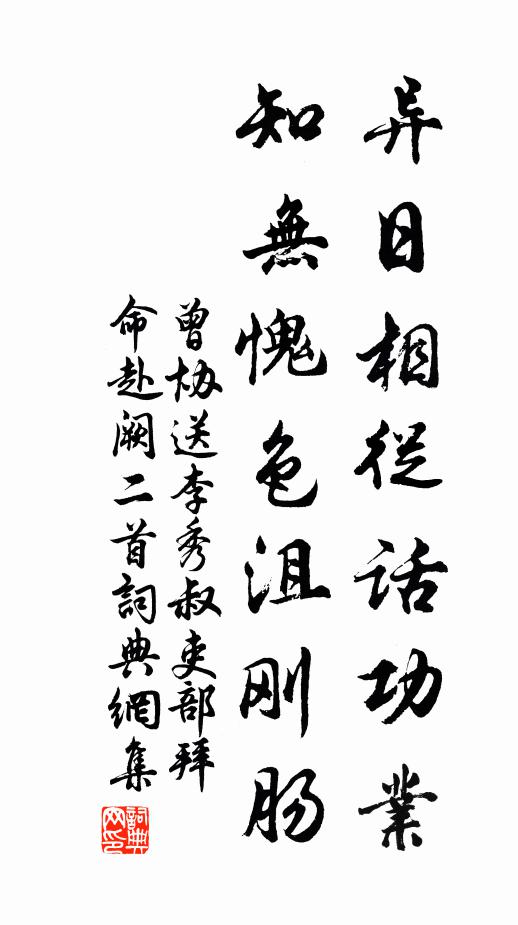 异日相從话功業
知無愧色沮刚肠
曾协送李秀叔吏部拜
命赴阙二首詞典網集
詞典
网印